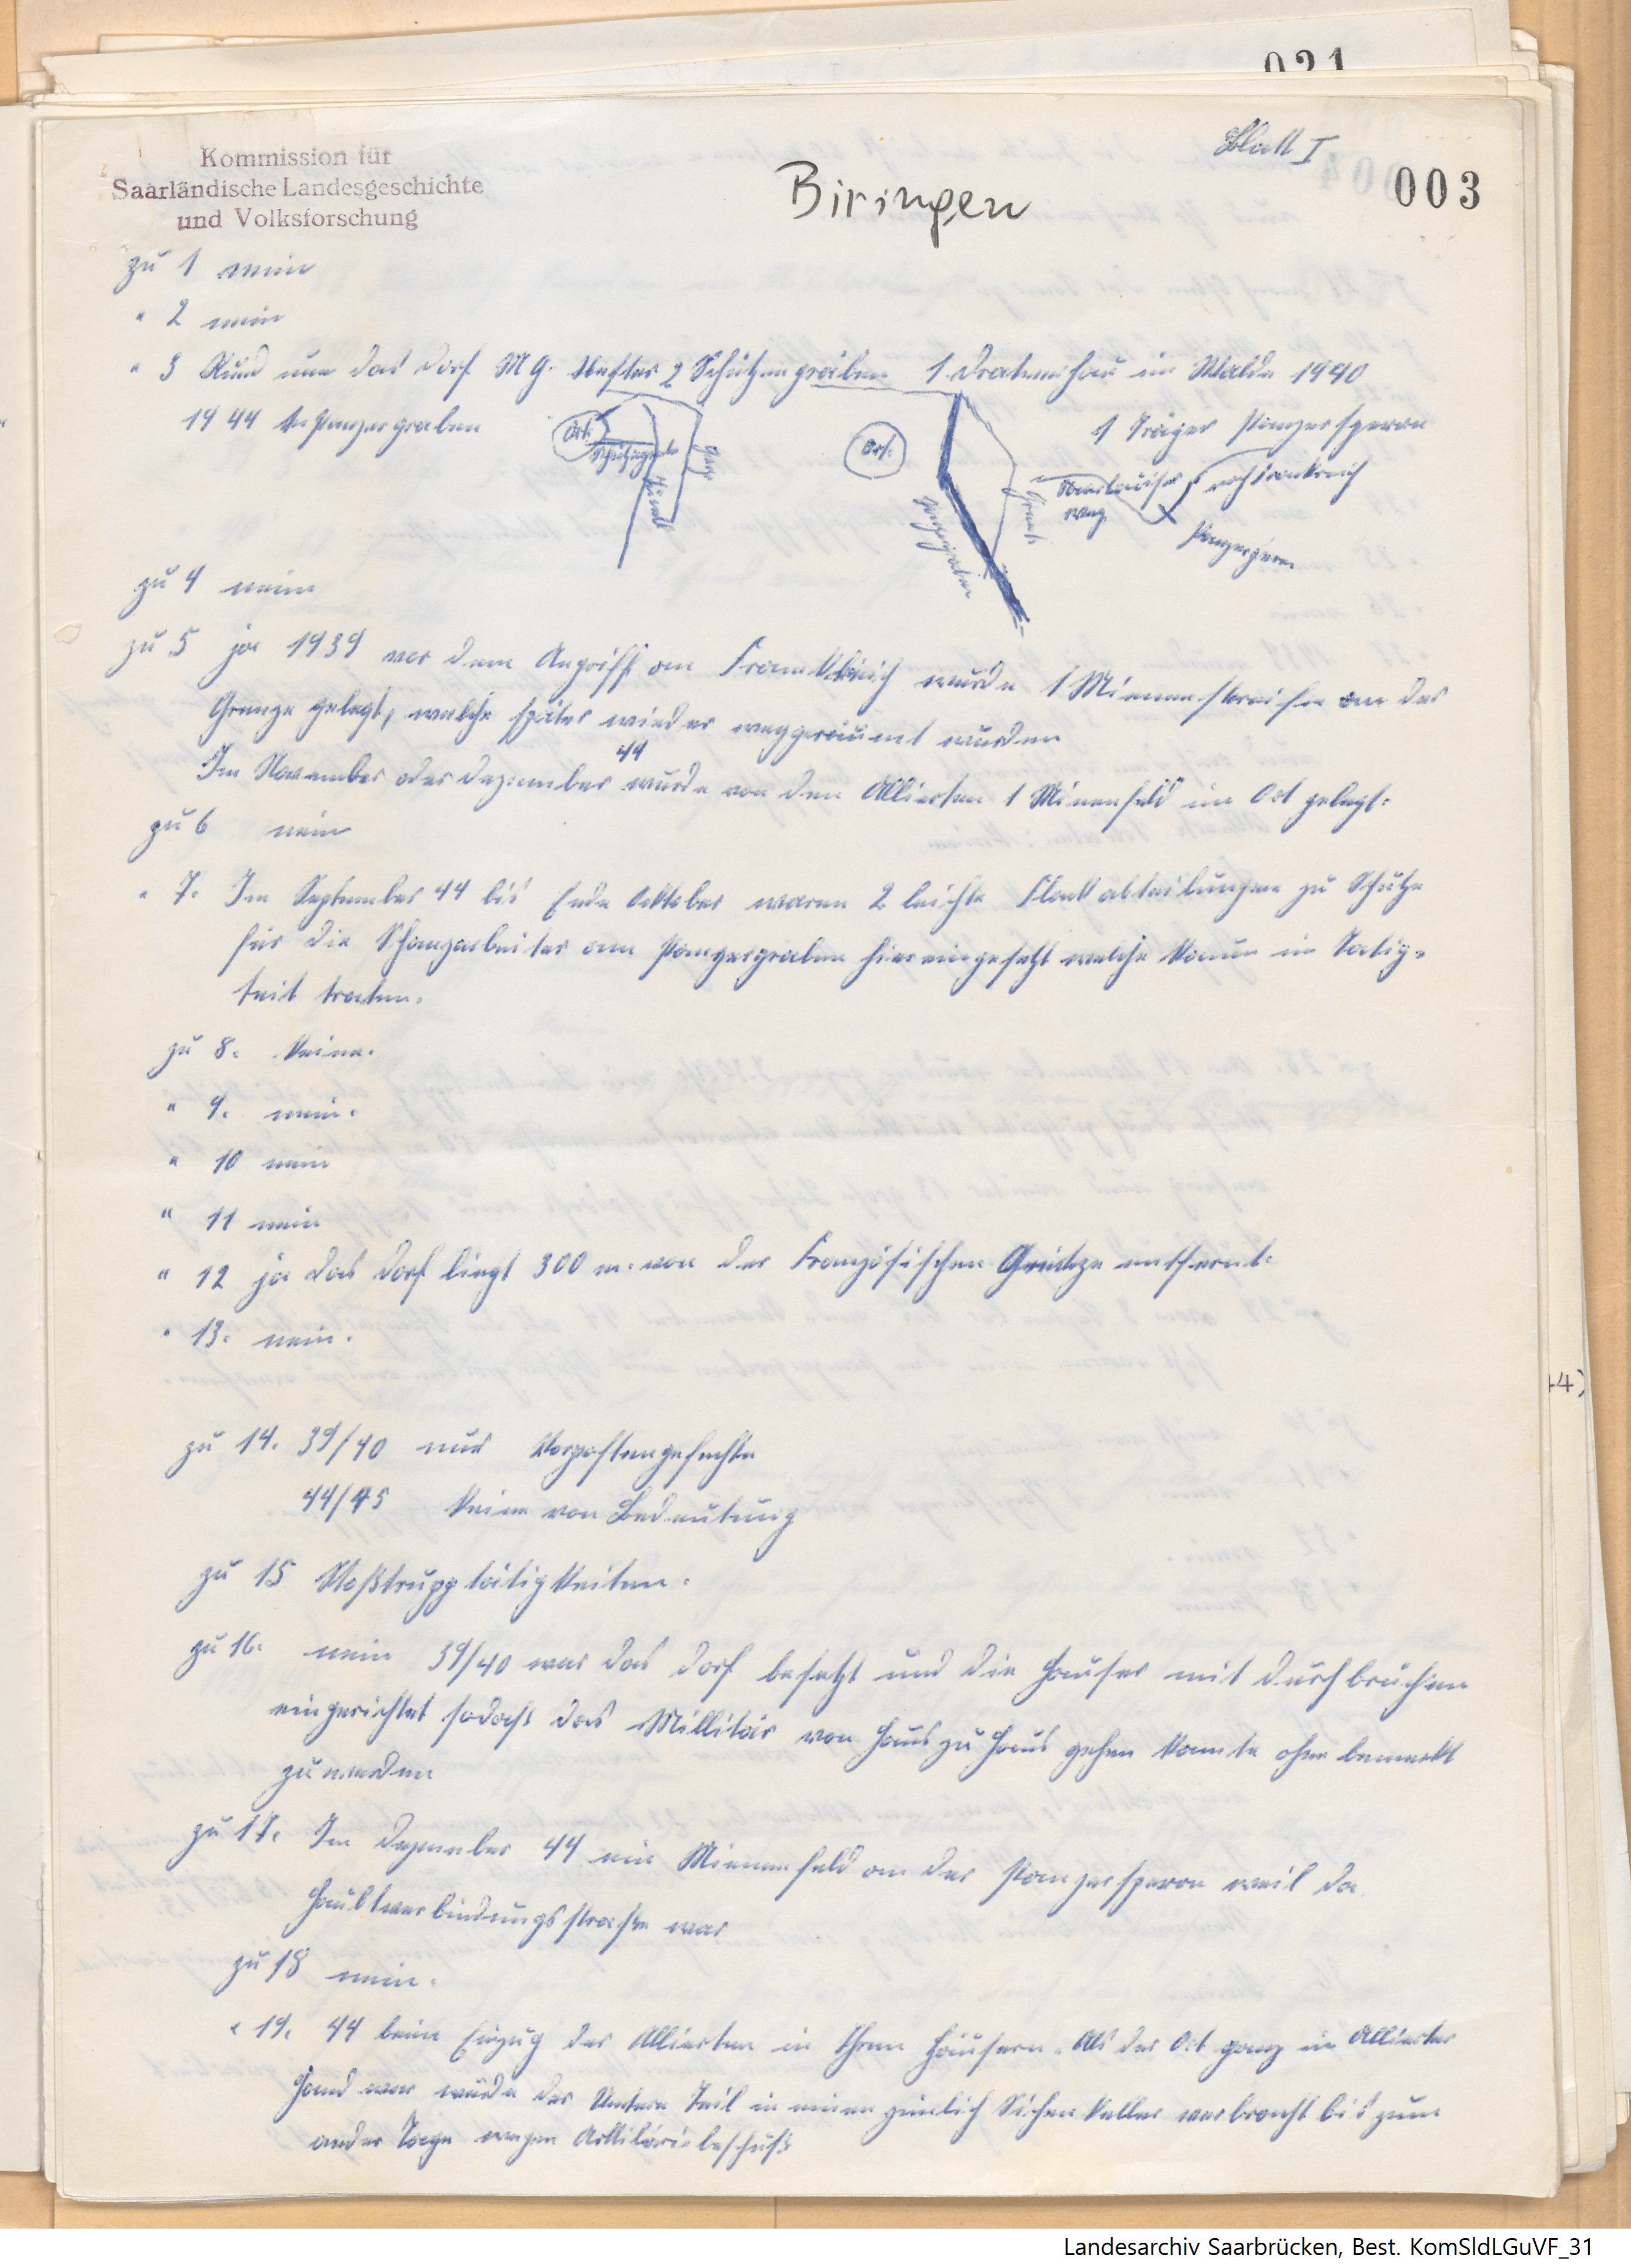 021
Blatt I
003
Kommission für
Saarländische Landesgeschichte
und Volksforschung
Biringen
zu 1 nein
" 2 nein
" 3 Rund um das Dorf M G. Nester 2 Schützengräben 1 Dratverhau im Walde 1940
1944 Panzergraben
1 Träger Panzersperre
Ort.
Schützengrab
Ort.
Panzergraben
Grenze
weg
nach Frankreich
Panzersperre
zu 4 nein
zu 5 ja 1939 vor dem Angriff am Frankreich wurde 1 Mienenstreifen an der
Grenze gelegt, welche später wieder weggeräumt wurden
44
Im November oder Dezember wurde von den Alliierten 1 Minenfeld im Ort gelegt.
zu 6 nein
" 7. Im September 44 bis Ende Oktober waren 2 leichte Flakabteilungen zu Schutze
für die Schanzarbeiter am Panzergraben hier eingesetzt welche kaum in Tatig-
keit traten.
zu 8. Keine.
" 9. nein.
" 10 nein
" 11 nein
" 12 ja das Dorf liegt 300 m. von der Französischen Grenze entfernt.
" 13. nein.
zu 14. 39/40 nur Vorpostengefechte
44/45 Keine von Bedeutung
zu 15 Stoßtrupptätigkeiten.
zu 16. nein 39/40 war das Dorf besetzt und die Häuser mit Durchbrüchen
eingerichtet sodaß das Millitär von Haus zu Haus gehen konnte ohne bemerkt
zu werden
zu 17. Im Dezember 44 ein Mienenfeld an der Panzersperre weil da
Haubtverbindungsstraße war
zu 18 nein.
" 19. 44 beim Einzug der Alliierten in Ihren Häusern. Als der Ort ganz in Alliierter
Hand war wurde der Untere Teil in einen zimlich Sichen Keller verbracht bis zum
ander Tage wegen Artilleriebeschuß
44)
Landesarchiv Saarbrücken, Best. KomSldLGuVF_31